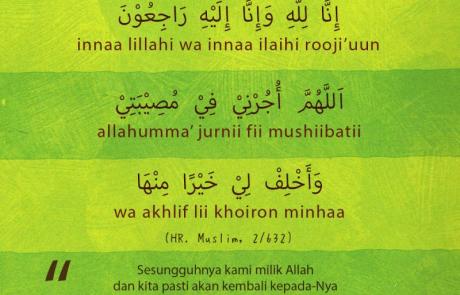 إِنَّا لِلَّهِ وَإِنَّا إِلَيْهِ رَاجِعُوْنَ
innaa lillahi wa innaa ilaihi rooji'uun
اَللَّهُمَّ أُجُرْنِيْ فِيْ مُصِيْبَتِيْ
allahumma' jurnii fii mushiibatii
وَأَخْلِفْ لِيْ خَيْرًا مِنْهَا
wa akhlif lii khoiron minhaa
(HR. Muslim, 2/632)
"
Sesungguhnya kami milik Allah
dan kita pasti akan kembali kepada-Nya